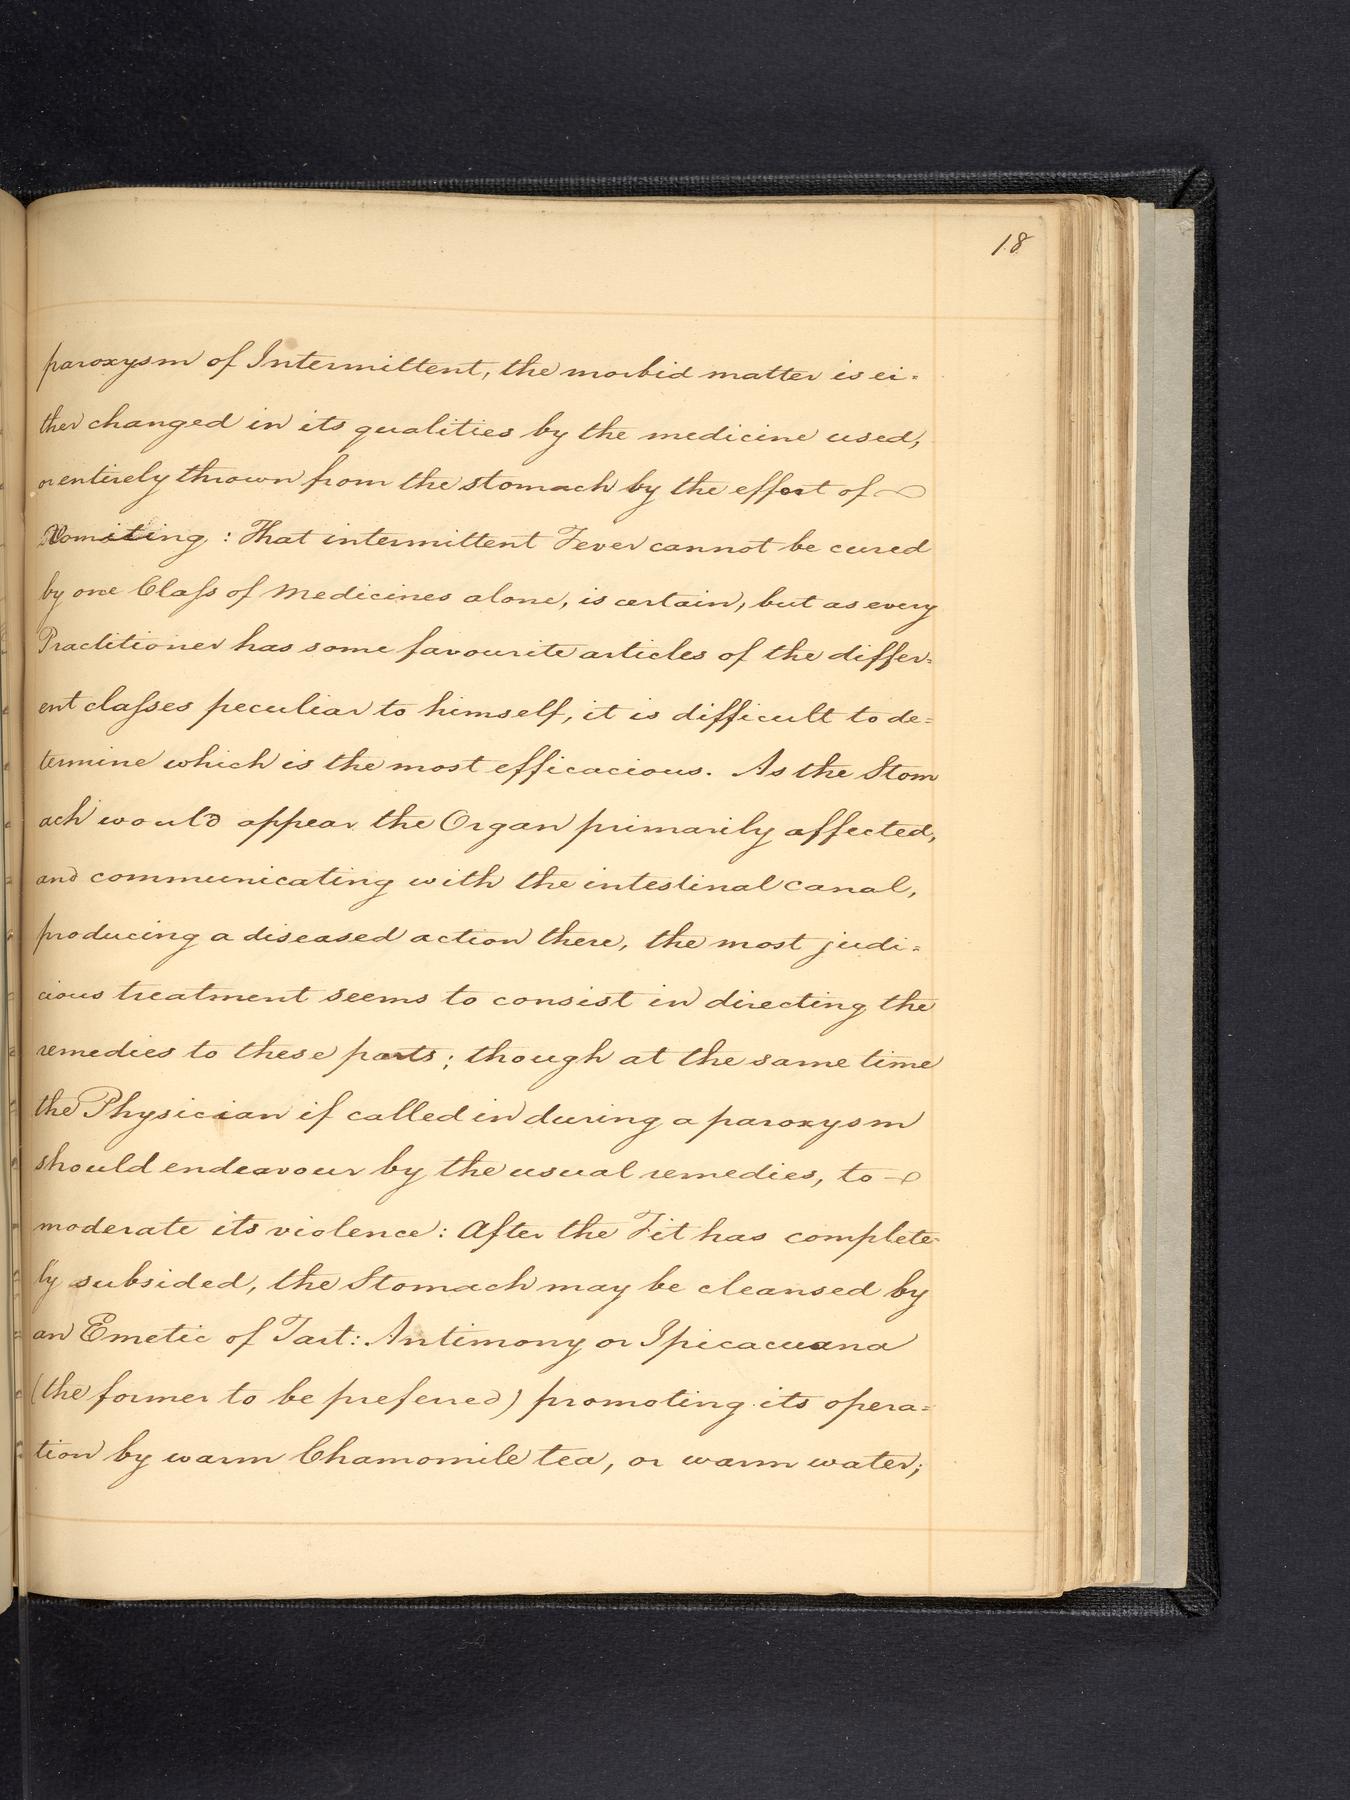 18
paroxysm of Intermittent, the morbid matter is ei=
ther changed in its qualities by the medicine used,
or entirely thrown from the stomach by the effort of
Vomiting : That intermittent Fever cannot be cured
by one Claſs of Medicines alone, is certain, but as every
Practitioner has some favourite articles of the differ=
ent claſses peculiar to himself, it is difficult to de=
termine which is the most efficacious. As the Stom
ach would appear the Organ primarily affected,
and communicating with the intestinal canal,
producing a diseased action there, the most judi=
cious treatment seems to consist in directing the
remedies to these parts; though at the same time
the Physician if called in during a paroxysm
should endeavour by the usual remedies, to
moderate its violence: After the Fit has complete-
ly subsided, the Stomach may be cleansed by
an Emetic of Tart: Antimony or Ipicacuana
(the former to be preferred) promoting its opera=
tion by warm Chamomile tea, or warm water;